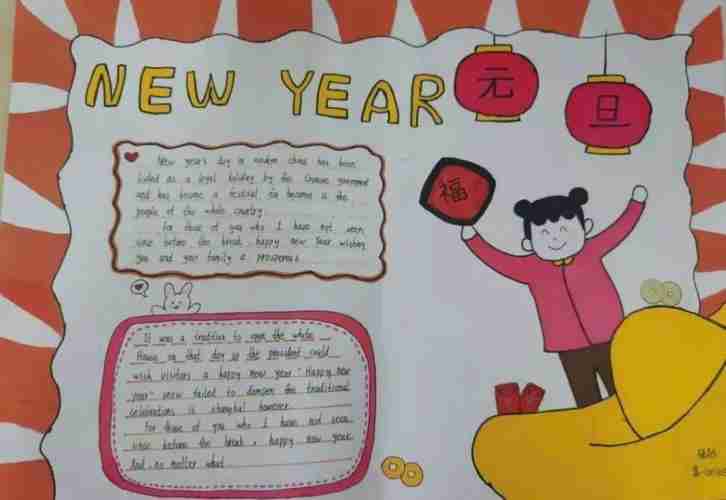 NEW YEAR
元
旦
福
New year's day in modern china has been
listed as a legal holiday by the Chinese government
and has become a festival for become is the
people of the whole country
For those of you who I have not seen
since before the break, happy new Year wishing
you and your family a prosperous
It was a tradition to open the white
House on that day so the president could
wish visitors a happy new year "Happy new
year" snow failed to dampen the traditional
celebrations in shanghai however
For those of you who I have not seen
since before the break, happy new year
And no matter what